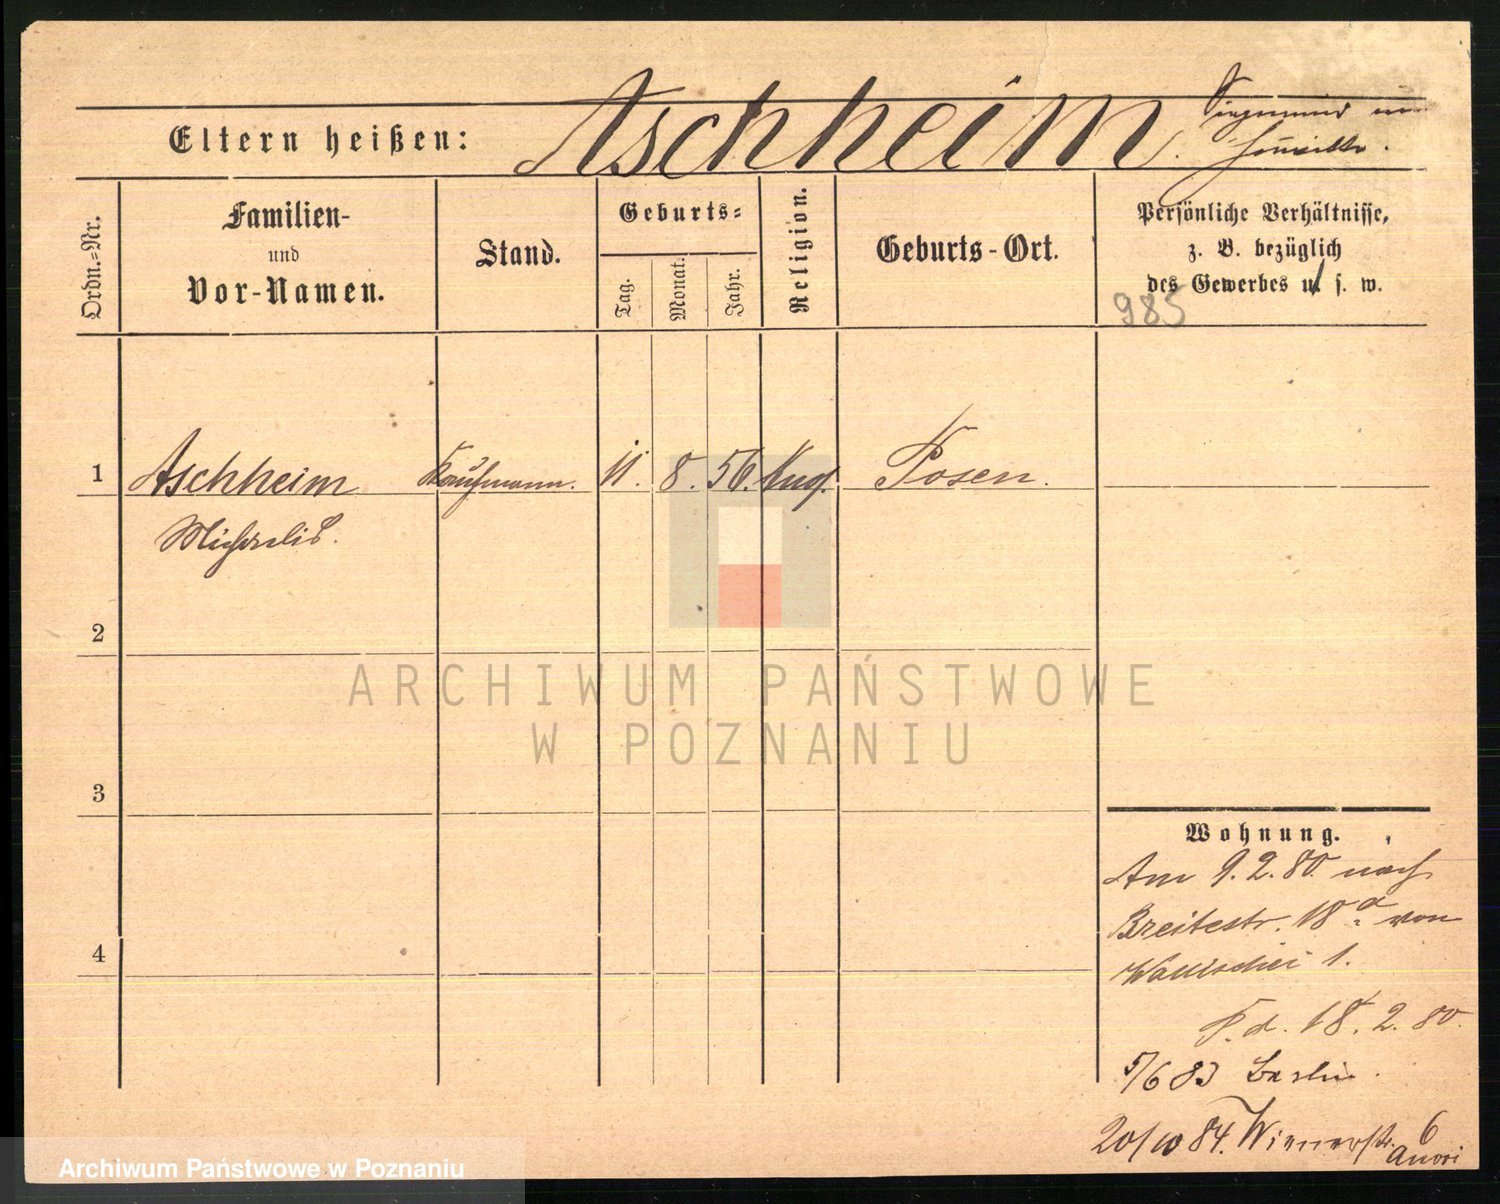 Eltern heißen: Aschheim. Siegmund
Ordn.=Nr.
Familien-
und
Vor-Namen.
Stand.
Geburts=
Tag.
Monat.
Jahr.
Religion.
Geburts-Ort.
Persönliche Verhältnisse,
z. B. bezüglich
des Gewerbes u. s. w.
985
1 Aschheim Kaufmann. 11. 8. 56. Posen.
Michaelis.
2
3
4
Wohnung.
Am 9.2.80. nach
Breitestr. 18a von
Wallischei 1.
18.2.80.
5/6 83 Berlin.
20/10 84. Wienerstr. 6
ARCHIWUM PAŃSTWOWE
W POZNANIU
Archiwum Państwowe w Poznaniu